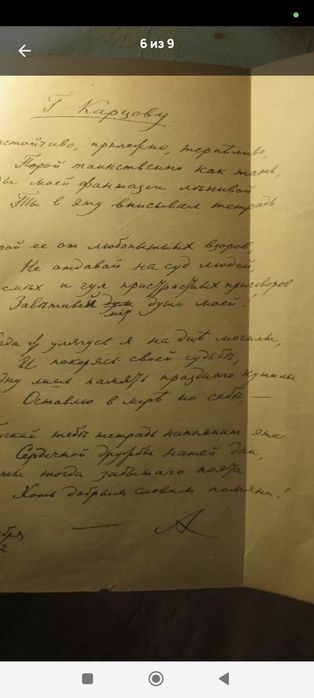 6 из 9
Г. Карцову
прилежно, терпѣливо,
Порой таинственно как тать,
моей фантазіи лѣнивой
Ты в эту вписывал тетрадь
ее от любопытных взоров,
Не отдавай на суд людей,
и гул пристрастных приговоров
Завѣтный мір души моей!
улягусь я на днѣ могилы,
И покорясь своей судьбѣ,
лишь память праздного кутилы
Оставлю в мірѣ по себѣ, —
тебѣ тетрадь напомнит эта
Сердечной дружбы нашей дни,
тогда забытаго поэта
Хоть добрым словом помяни!
— А